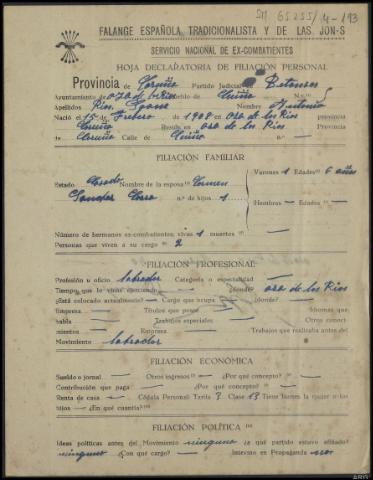 SM 65255/4-193
FALANGE ESPAÑOLA TRADICIONALISTA Y DE LAS JON-S
SERVICIO NACIONAL DE EX-COMBATIENTES
HOJA DECLARATORIA DE FILIACIÓN PERSONAL
Provincia de Coruña Partido Judicial Betanzos
Ayuntamiento de oza de los Rios Pueblo de Cuiña N.º 5
Apellidos Rios Nombre Antonio
Nació el 15 de Febrero de 1908 en oza de los Rios provincia
Coruña Reside en oza de los Rios Provincia
de Coruña Calle de Cuiña
FILIACIÓN FAMILIAR
Estado Casado Nombre de la esposa Carmen Varones 1 Edades 6 años
Sanchez n.º de hijos 1 Hembras — Edades —
Número de hermanos ex-combatientes, vivos 1 muertos —
Personas que viven a su cargo 2
FILIACIÓN PROFESIONAL
Profesión u oficio labrador Categoría o especialidad —
Tiempo que lo viene ejerciendo ¿dónde? oza de los Rios
¿Está colocado actualmente? — Cargo que ocupa ¿dónde? —
Empresa — Títulos que posee — Idiomas que
habla — Trabajos especiales — Otros conoci-
mientos — Retornos — Trabajos que realizaba antes del
Movimiento labrador
FILIACIÓN ECONÓMICA
Sueldo o jornal — Otros ingresos — ¿Por qué concepto? —
Contribución que paga — ¿Por qué concepto? —
Renta de casa — Cédula Personal Tarifa 3 Clase 13 Tiene bienes la mujer o los
hijos — ¿En qué cuantía? —
FILIACIÓN POLÍTICA
Ideas políticas antes del Movimiento ninguno ¿a qué partido estuvo afiliado?
ninguno ¿Con qué cargo? — Intervino en Propaganda